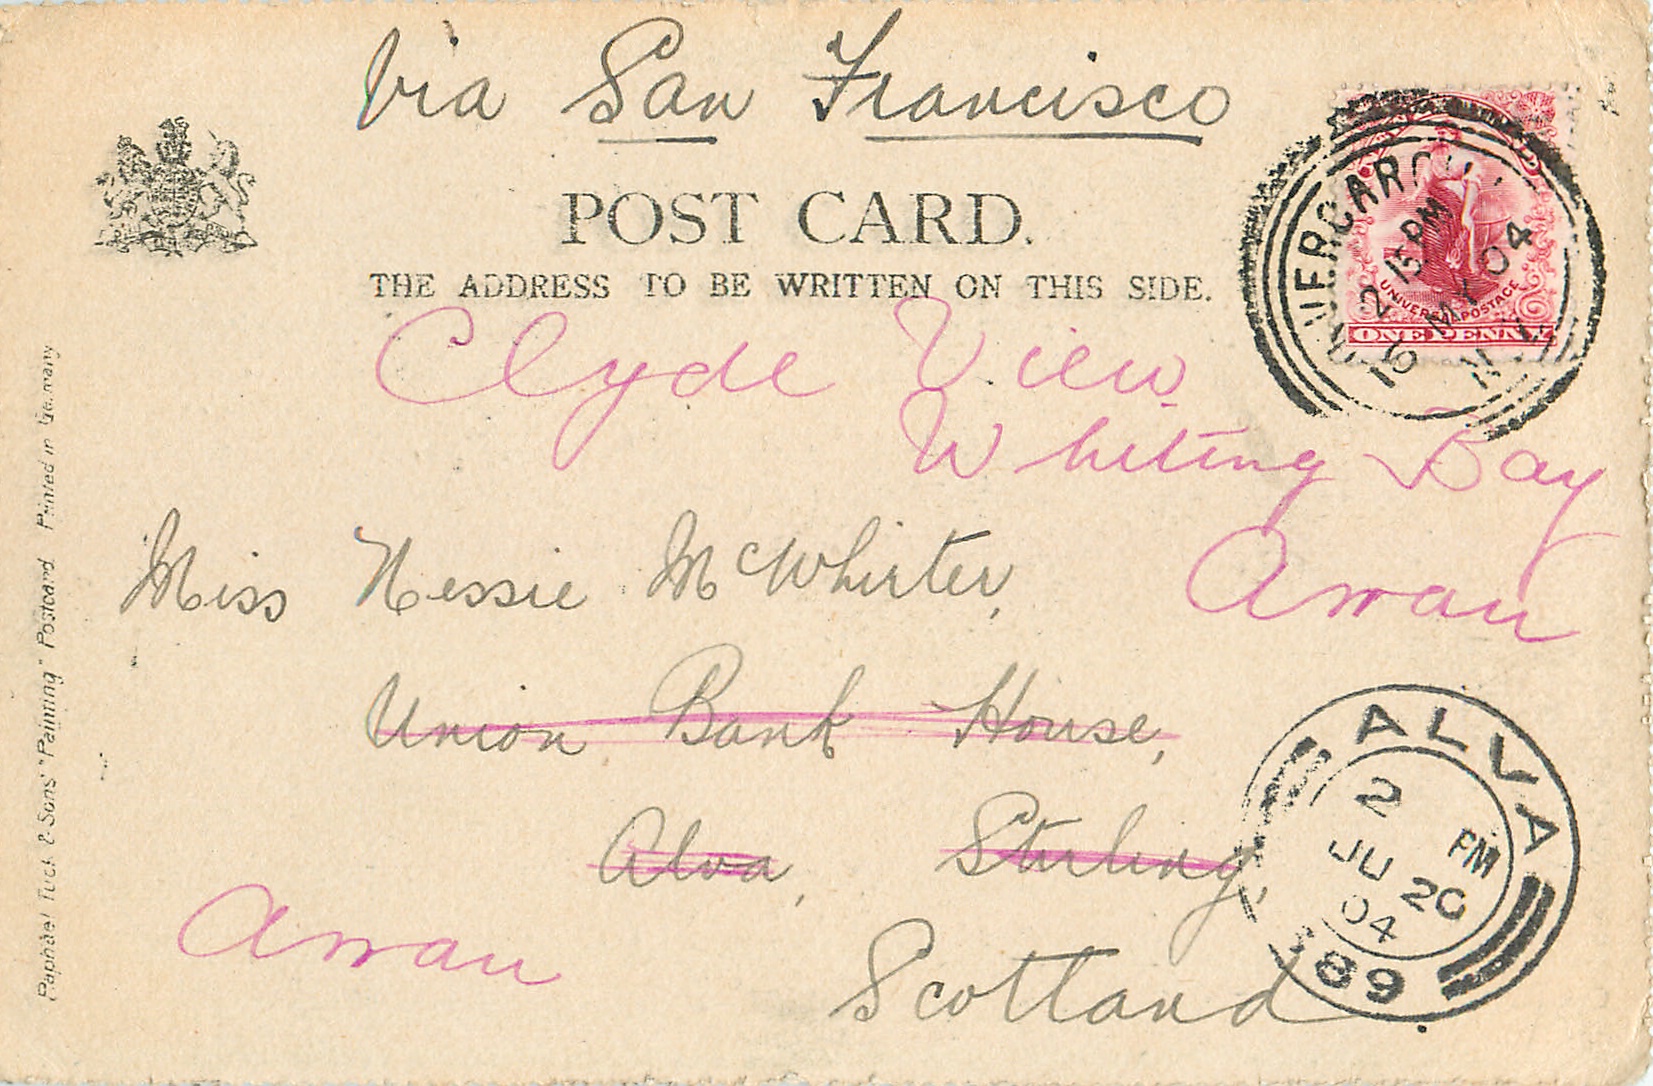 Via San Francisco
POST CARD.
THE ADDRESS TO BE WRITTEN ON THIS SIDE.
INVERCARGILL
2 15PM
16 MY 04
N.Z.
UNIVERSAL POSTAGE
ONE PENNY
Clyde View
Whiting Bay
Arran
Miss Nessie McWhirter,
Union Bank House,
Alva, Stirling,
Arran
Scotland
ALVA
2 PM
JU 20
04
89
Raphael Tuck & Sons' "Painting" Postcard Printed in Germany